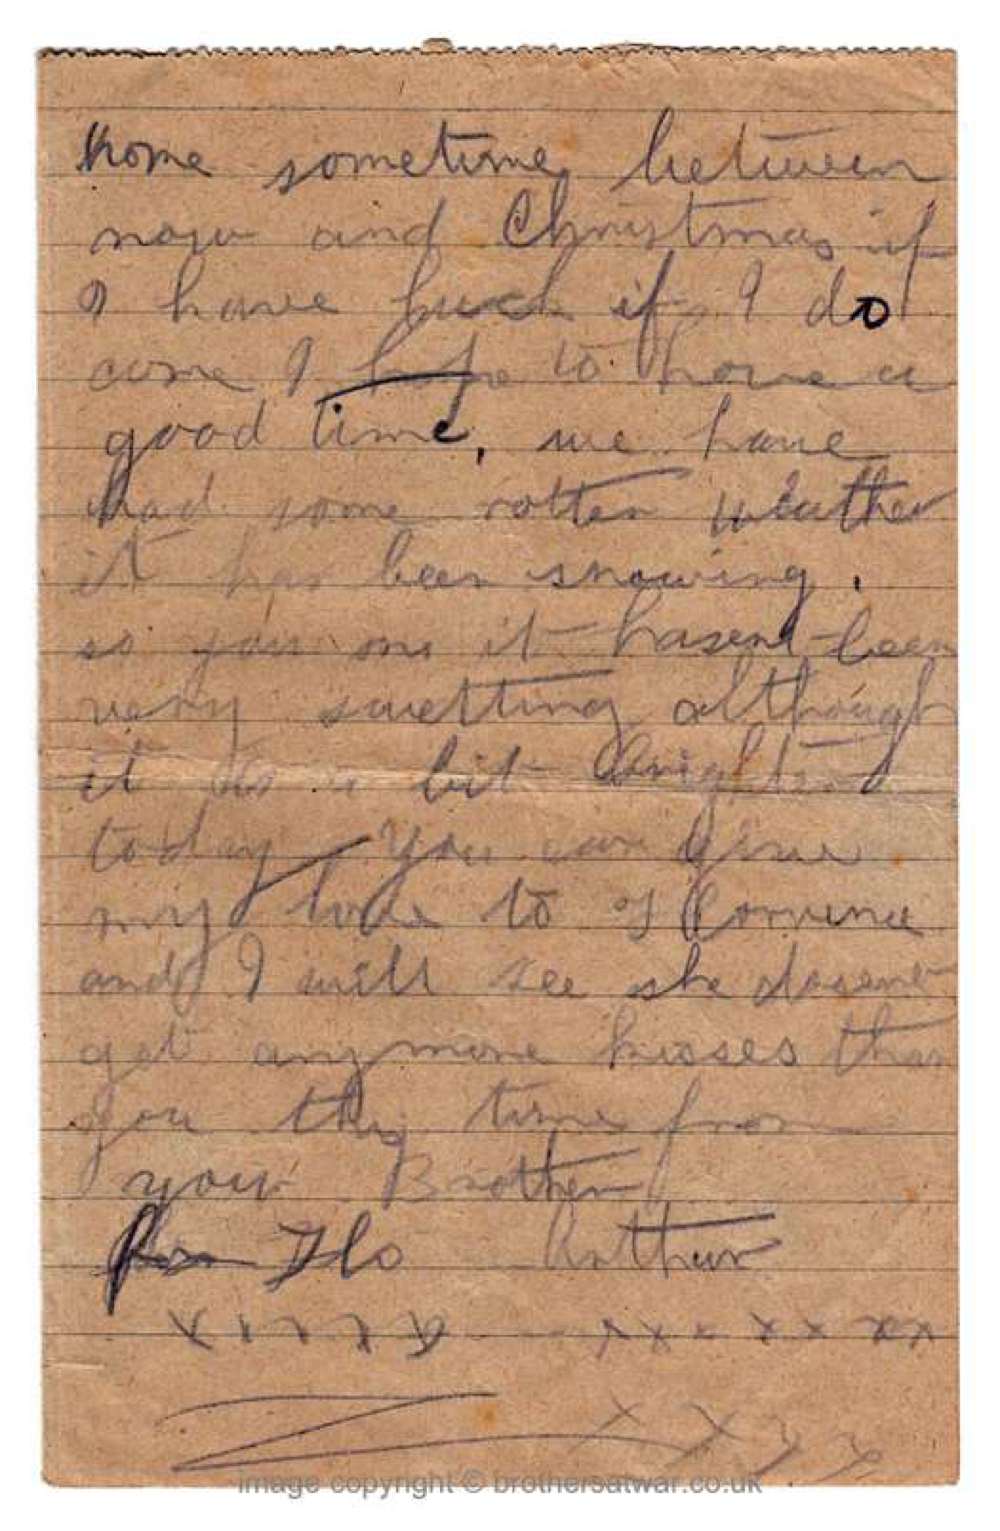 home sometime between
now and Christmas if
I have luck if I do
come I hope to have a
good time, we have
had some rotten weather
it has been snowing.
so you see it hasent been
very sweltting although
it is a bit brighter
today You can give
my love to Florence
and I will see she dosent
get anymore kisses than
you this time from
your Brother
for Flo Arthur
x x x x x x x x x x x x x x
x x x x
image copyright © brothersatwar.co.uk